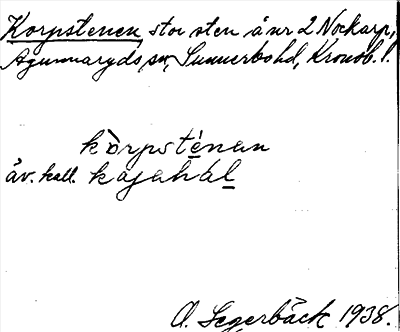 Korpstenen, stor sten å nr 2 Nockarp,
Agunnaryds sn, Sunnerbo hd, Kronob. l.
kòrpsténan
äv. kall. kajahàl
A. Segerbäck 1938.